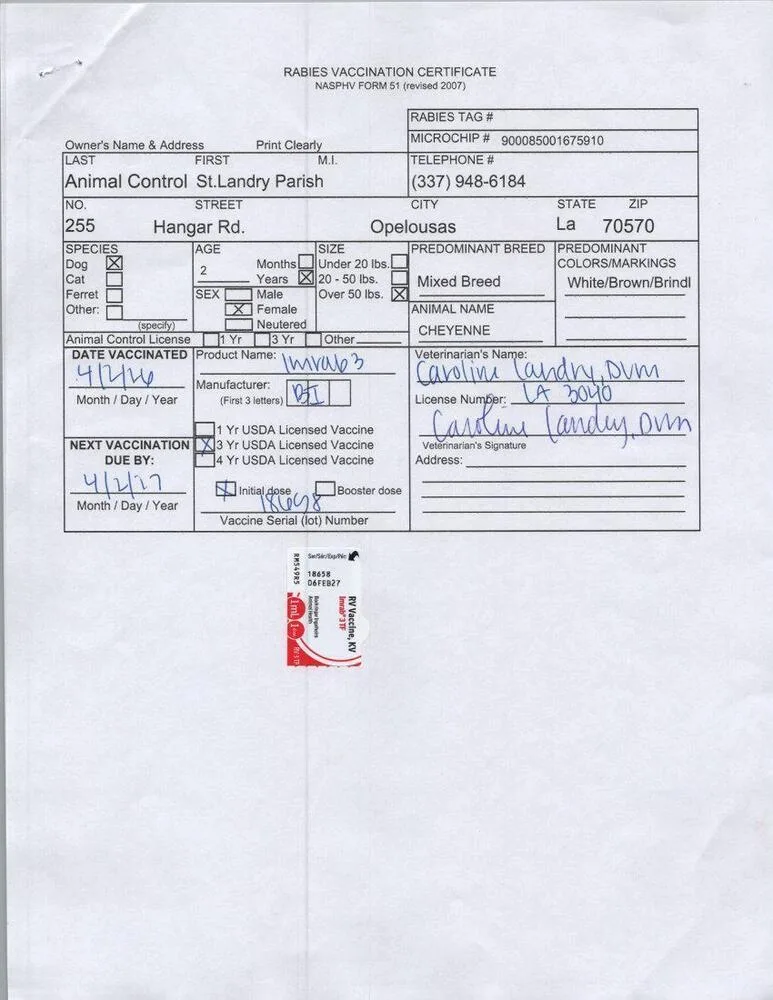 RABIES VACCINATION CERTIFICATE
NASPHV FORM 51 (revised 2007)
RABIES TAG #
MICROCHIP # 900085001675910
Owner's Name & Address Print Clearly
LAST FIRST M.I. TELEPHONE #
Animal Control St.Landry Parish (337) 948-6184
NO. STREET CITY STATE ZIP
255 Hangar Rd. Opelousas La 70570
SPECIES AGE SIZE PREDOMINANT BREED PREDOMINANT
COLORS/MARKINGS
Dog 2 Months Under 20 lbs.
Cat Years 20 - 50 lbs. Mixed Breed White/Brown/Brindl
Ferret SEX Male Over 50 lbs.
Other: Female ANIMAL NAME
(specify) Neutered CHEYENNE
Animal Control License 1 Yr 3 Yr Other
DATE VACCINATED Product Name: Imrab 3 Veterinarian's Name:
4/2/26 Caroline Landry, DVM
Month / Day / Year Manufacturer: BI License Number: LA 3040
(First 3 letters)
Caroline Landry, DVM
1 Yr USDA Licensed Vaccine
NEXT VACCINATION 3 Yr USDA Licensed Vaccine Veterinarian's Signature
DUE BY: 4 Yr USDA Licensed Vaccine Address:
4/2/27 Initial dose Booster dose
Month / Day / Year 18658
Vaccine Serial (lot) Number
Ser/Sér/Exp/Pér:
18658
06FEB27
RM549R5
RV Vaccine, KV
Imrab® 3 TF
Boehringer Ingelheim
Animal Health
1mL 1